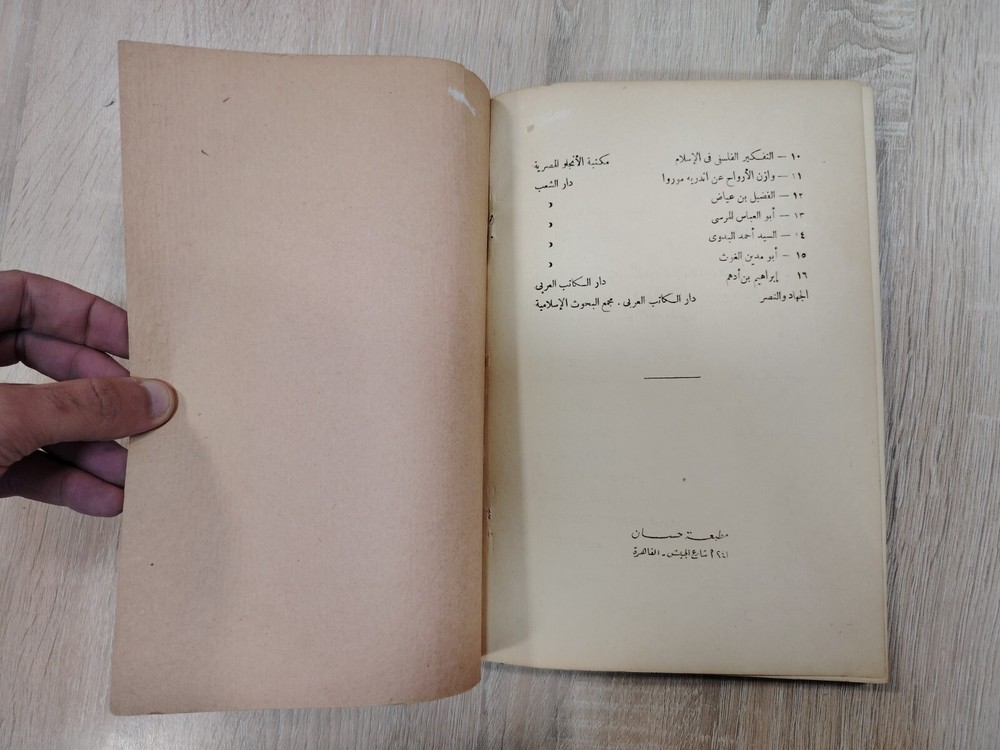 ١٠ — التفكير الفلسفى فى الإسلام مكتبة الأنجلو المصرية
١١ — وازن الأرواح عن اندريه موروا دار الشعب
١٢ — الفضيل بن عياض »
١٣ — أبو العباس المرسى »
١٤ — السيد أحمد البدوى »
١٥ — أبو مدين الغوث »
١٦ إبراهيم بن أدهم دار الكاتب العربى
الجهاد والنصر دار الكاتب العربى . مجمع البحوث الإسلامية
مطبعة حسان
٢٤١ شارع الجيش - القاهرة